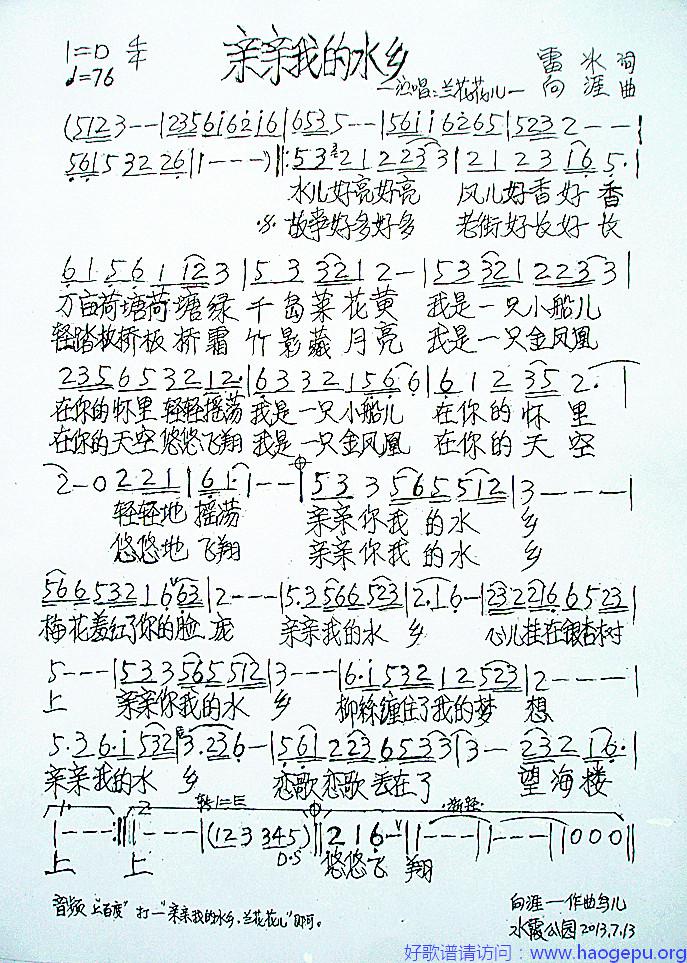 1=D 4/4 亲亲我的水乡 雷冰 词
♩=76 —演唱:兰花花儿— 向涯 曲
(5 1 2 3 - - | 2 3 5 6 i 6 2 i 6 | 6 5 3 5 - - | 5 6 i i 6 2 6 5 | 5 2 3 2 - - |
5 6 1 5 3 2 2 2 6 | 1 - - - ) ‖: 5 3 3 2 1 2 2 3 3 | 2 1 2 3 1 6 5 · |
水儿好亮好亮 风儿好香好香
故事好多好多 老街好长好长
6 1 5 6 1 1 2 3 | 5 3 3 2 1 2 - | 5 3 3 2 1 2 2 3 3 |
万亩荷塘荷塘绿 千岛菜花黄 我是一只小船儿
轻踏板桥板桥霜 竹影藏月亮 我是一只金凤凰
2 3 5 6 5 3 2 1 2 · | 6 3 3 2 1 5 6 6 | 6 1 2 3 5 2 · |
在你的怀里轻轻摇荡 我是一只小船儿 在你的怀里
在你的天空悠悠飞翔 我是一只金凤凰 在你的天空
2 - 0 2 2 1 | 6 1 · 1 - - | 5 3 3 5 6 5 5 1 2 | 3 - - - |
轻轻地摇荡 亲亲你我的水乡
悠悠地飞翔 亲亲你我的水乡
5 6 6 5 3 2 1 6 6 3 | 2 - - - | 5 · 3 5 6 6 5 2 3 | 2 · 1 6 - | 2 3 2 2 1 6 6 5 2 3 |
梅花羞红了你的脸庞 亲亲我的水乡 心儿挂在银杏树
5 - - - | 5 3 3 5 6 5 5 1 2 | 3 - - - | 6 · i 5 3 2 1 2 5 2 3 | 2 - - - - |
上 亲亲你我的水乡 柳丝缠住了我的梦想
5 · 3 6 · i 5 3 2 | 3 · 2 3 6 - | 5 6 1 2 2 3 6 5 3 3 | 3 - 2 3 2 1 6 · |
亲亲我的水乡 恋歌恋歌丢在了 望海楼
1· 2 转1=E ·渐轻·
1 - - - :‖ 1 - - - | (1 2 3 3 4 5) ‖ 2 1 6 - | 1 - - - | 1 - - - | 1 0 0 0 ‖
上 上 D.S 悠悠飞翔
音频上“百度”打—“亲亲我的水乡,兰花花儿”即可。
向涯—作曲于儿
水霞公园2013.7.13
好歌谱请访问:www.haogepu.org